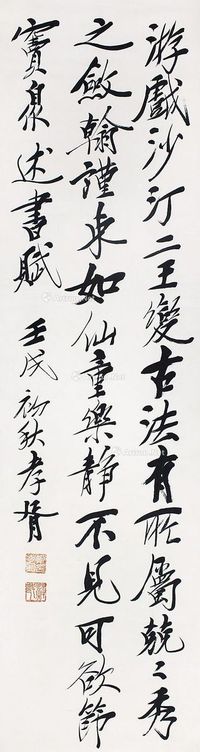 游戲沙汀二王變古法有所屬兢〻秀
之斂翰謹束如仙童樂靜不見可欲節
竇臮述書賦 壬戌初秋孝胥